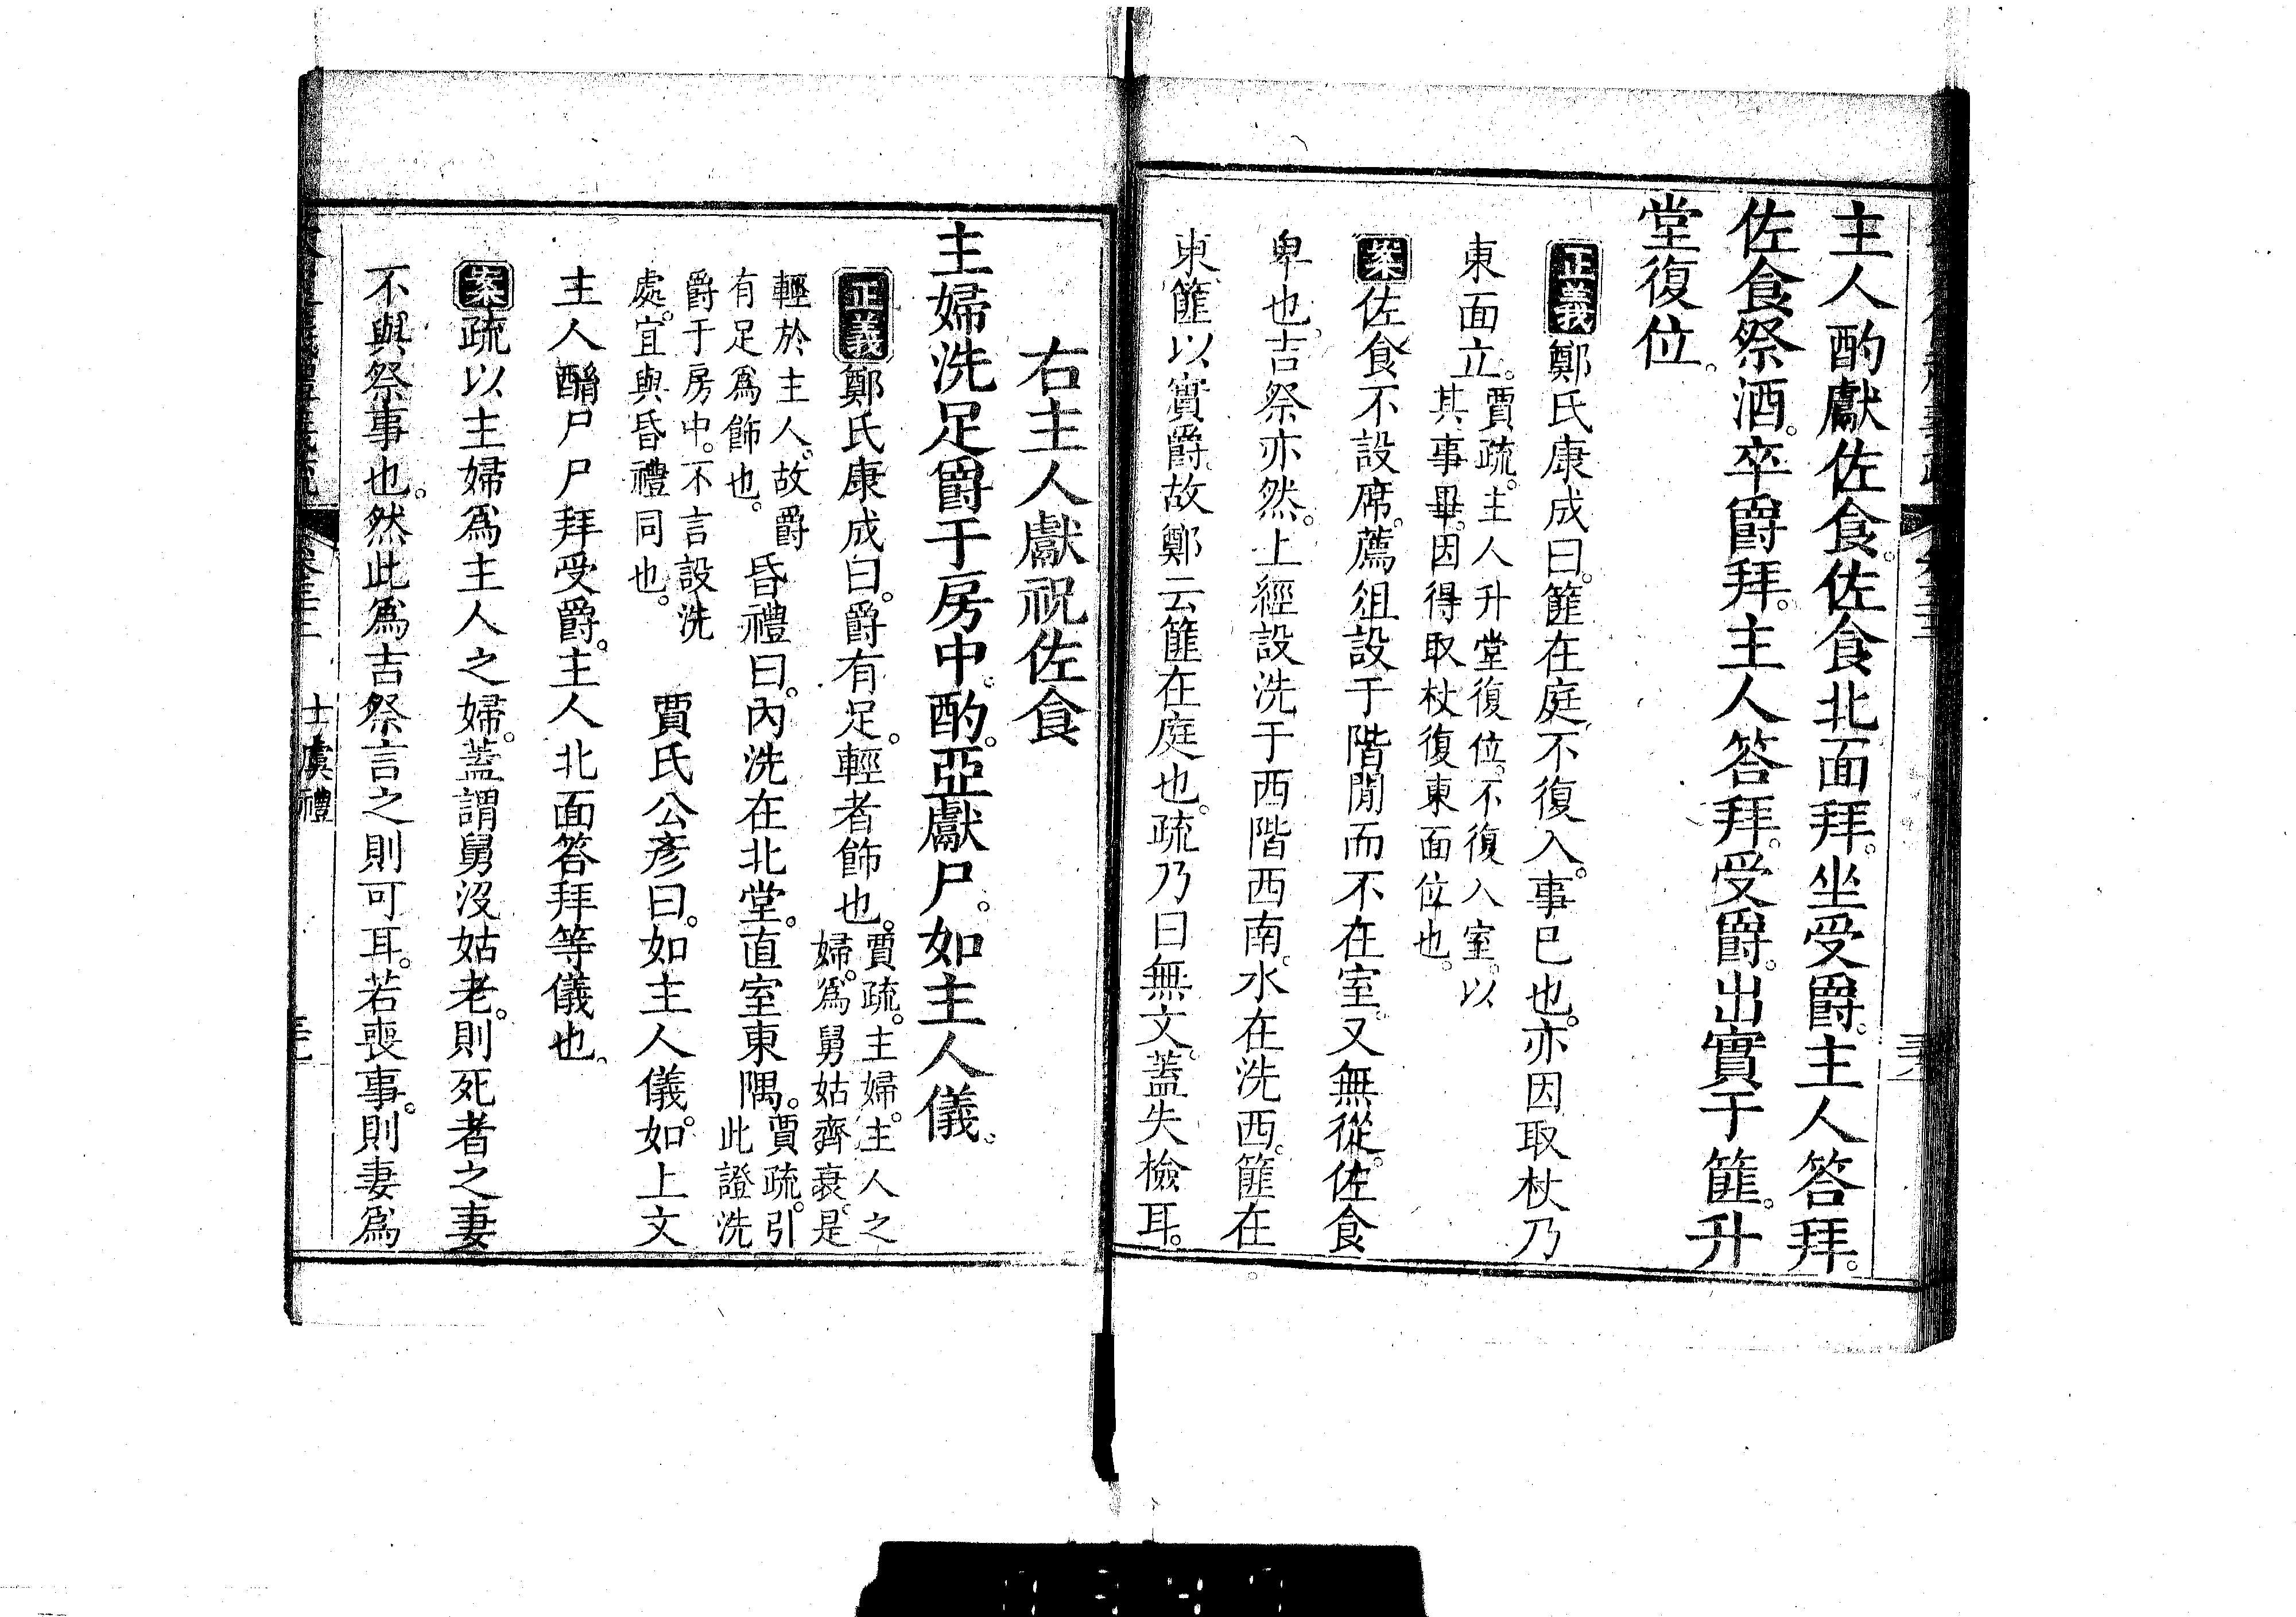 主人酌獻佐食。佐食北面拜。坐受爵。主人答拜。
佐食祭酒。卒爵拜。主人答拜。受爵。出實于篚。升
堂復位。
正義鄭氏康成曰。篚在庭。不復入。事已也。亦因取杖乃
東面立。賈疏。主人升堂復位。不復入室。以
其事畢。因得取杖復東面位也。
案佐食不設席。薦俎設于階閒而不在室。又無從。佐食
卑也。吉祭亦然。上經設洗于西階西南。水在洗西。篚在
東。篚以實爵。故鄭云篚在庭也。疏乃曰無文。蓋失檢耳。
右主人獻祝佐食
主婦洗足爵于房中。酌。亞獻尸。如主人儀。
正義鄭氏康成曰。爵有足。輕者飾也。賈疏。主婦。主人之
婦。爲舅姑齊衰。是
輕於主人。故爵
有足爲飾也。
昏禮曰。內洗在北堂。直室東隅。賈疏。引
此證洗
爵于房中。不言設洗
處。宜與昏禮同也。
賈氏公彥曰。如主人儀。如上文
主人酳尸尸拜受爵。主人北面答拜等儀也。
案疏以主婦爲主人之婦。蓋謂舅沒姑老。則死者之妻
不與祭事也。然此爲吉祭言之則可耳。若喪事。則妻爲
士虞禮